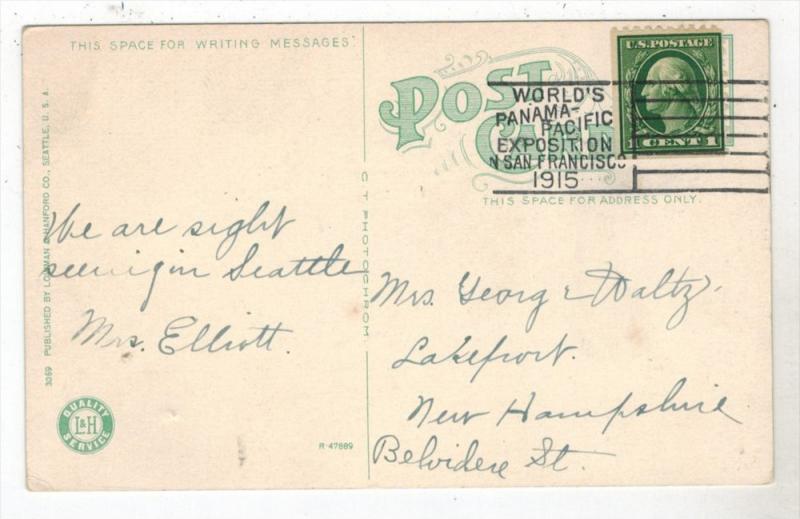 THIS SPACE FOR WRITING MESSAGES
POST CARD
U.S. POSTAGE
1 CENT 1
WORLD'S
PANAMA-
PACIFIC
EXPOSITION
IN SAN FRANCISCO
1915
THIS SPACE FOR ADDRESS ONLY.
We are sight
seeing in Seattle
Mrs. Elliott.
Mrs. George Waltz.
Lakeport.
New Hampshire
Belvidere St.
3069 PUBLISHED BY LOWMAN & HANFORD CO., SEATTLE, U. S. A.
C T PHOTOCHROM
QUALITY
L&H
SERVICE
R-47889